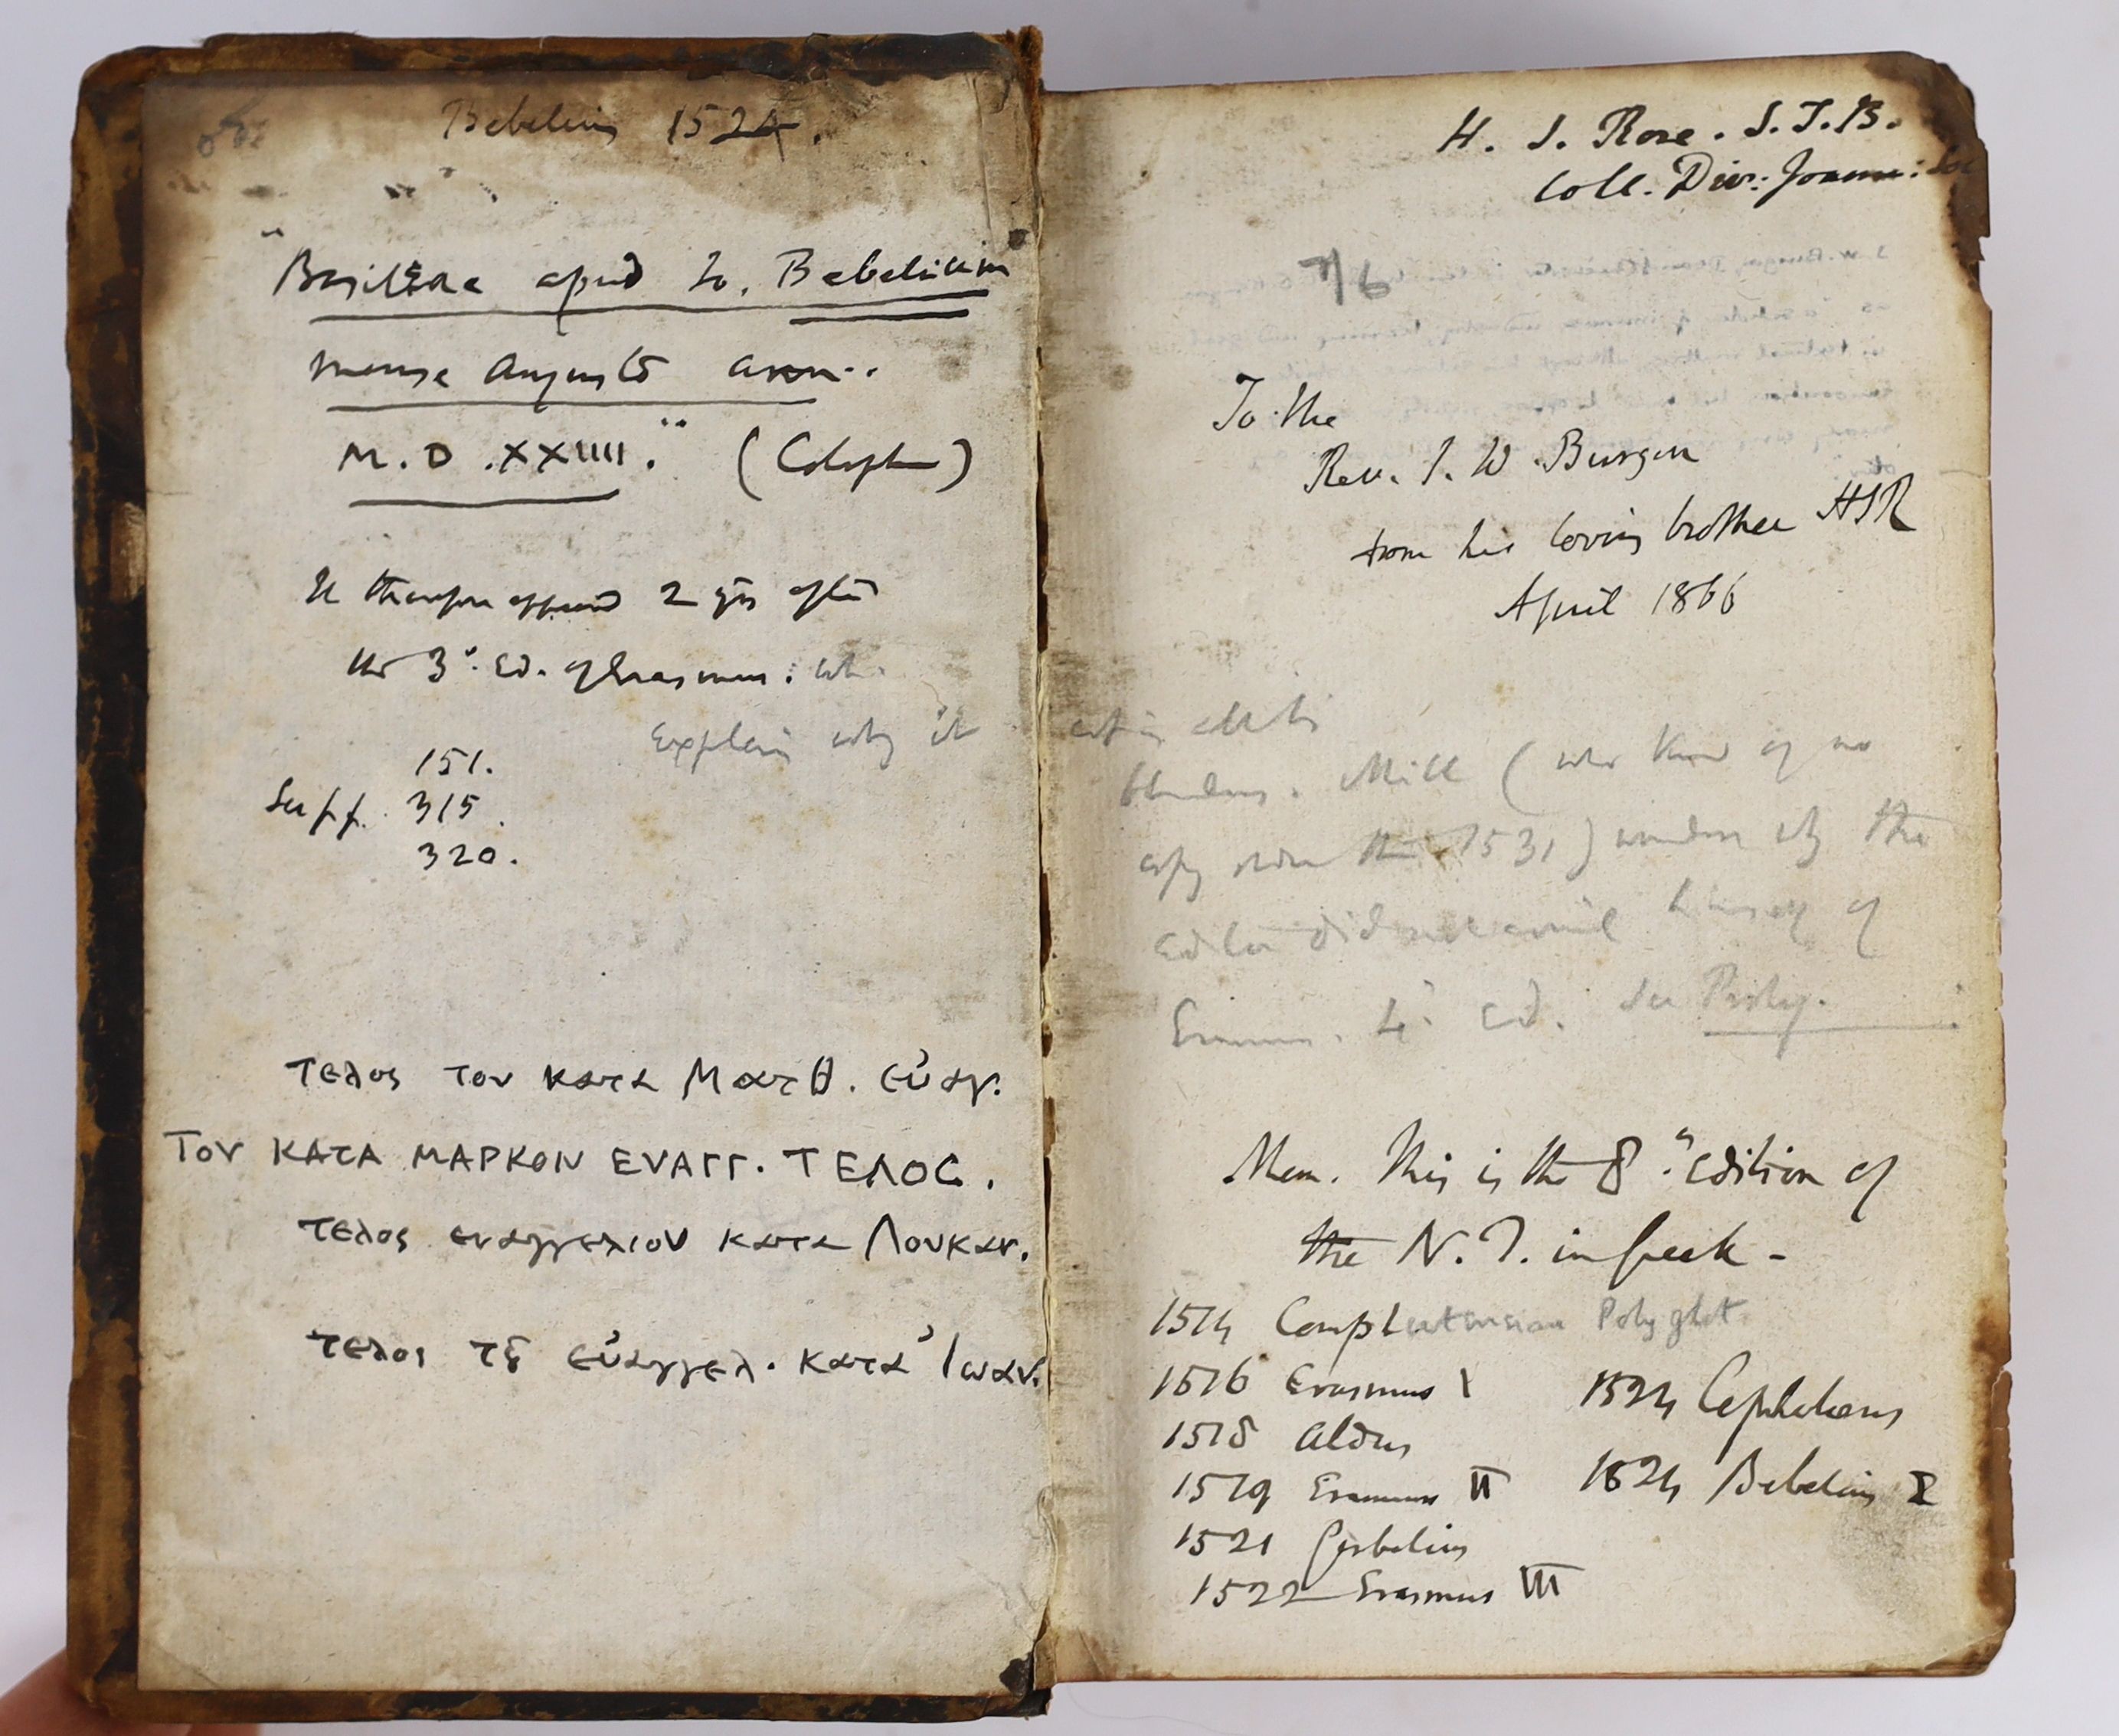 Bebelius 1524.
"Basileae apud Io. Bebelium
mense Augusto ann..
M.D.XXIIII." (Colophon)
It therefore appeared 2 yrs after
the 3d. Ed. of Erasmus: wh.
Explain why it
151.
See pp. 315.
320.
τελος του κατα Ματθ. εὐαγ.
Του ΚΑΤΑ ΜΑΡΚΟΝ ΕΥΑΓΓ. ΤΕΛΟC.
τελος ευαγγελιου κατα Λουκαν.
τελος τȣ εὐαγγελ. κατα Ἰωαν.
H. J. Rose. S.T.B.
Coll. Div: Joann: Soc
7/6
To the
Rev. J. W. Burgon
from his loving brother HJR
April 1866
Mill (who knew of no
copy older than 1531) wonders why the
Editor did not avail himself of
Erasmus. 4th Ed. See Proleg.
Mem. This is the 8th Edition of
the N.T. in Greek -
1514 Complutensian Polyglot
1516 Erasmus I
1518 Aldus
1519 Erasmus II
1521 Gerbelius
1522 Erasmus III
1524 Cephalaeus
1524 Bebelius I